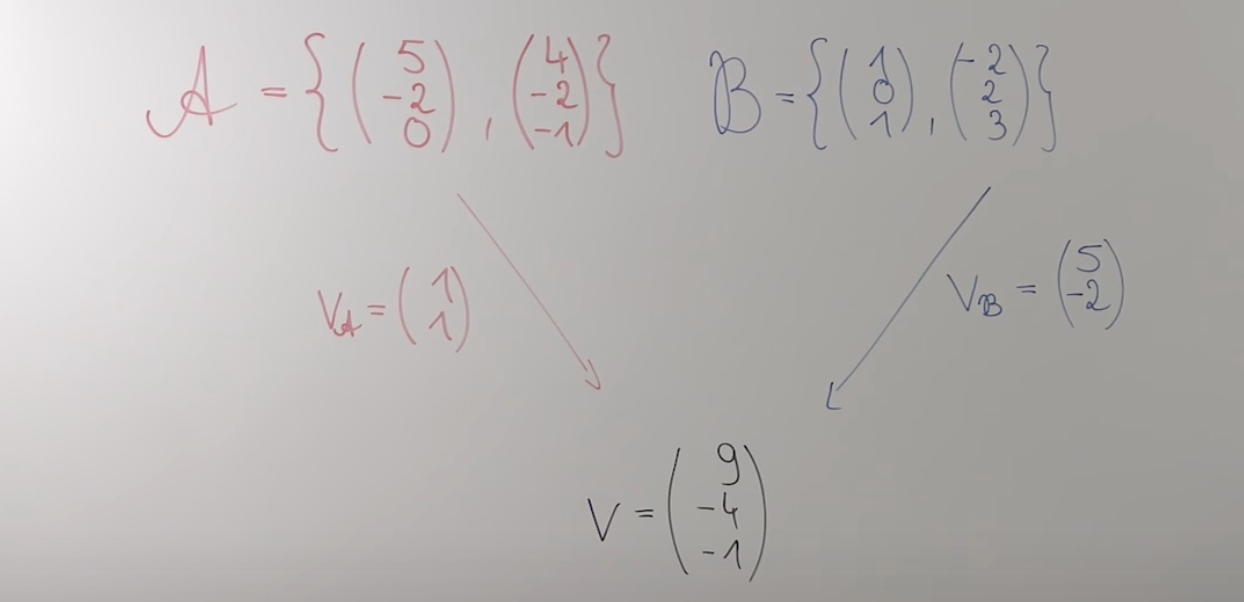 𝒜 = { ( 5 -2 0 ) , ( 4 -2 -1 ) }
B = { ( 1 0 1 ) , ( -2 2 3 ) }
V𝒜 = ( 1 1 )
VB = ( 5 -2 )
V = ( 9 -4 -1 )